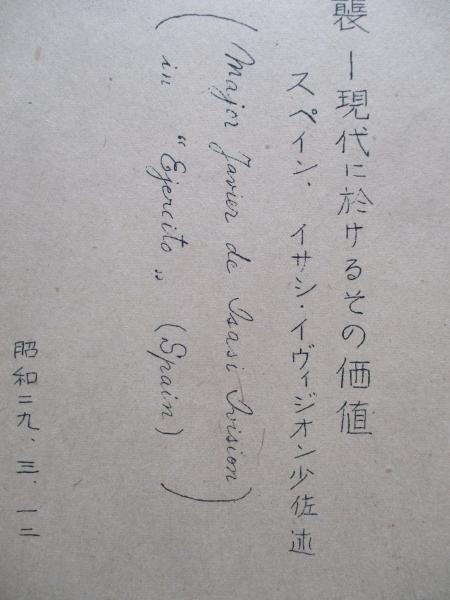 襲ー現代に於けるその価値
スペイン．イサシ・イヴィジオン少佐述
(Major Javier de Isasi Ivision
in "Ejercito" (Spain))
昭和二九、三、一二